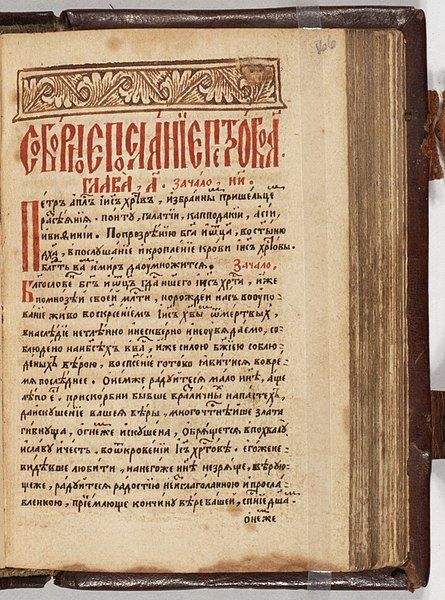 СОБОРНОЕ ПОСЛАНИЕ ПЕТРОВО А҃.
ГЛАВА, А҃. Зачало, н҃и.
Петръ ап҃лъ і҆и҃съ хр҃твъ, избранны пришельце
расѣянїѧ. понту, галатїи, капподакїи, асїи,
ивиѳинїи. Попрозрѣнию бг҃а и҆ѡц҃а, востыню
дх҃а, впослушанїе и҆кропленїе крови і҆и҃съ хр҃товы.
Баг҃ть ва и҆миръ даѹмножится. Зачало.
Благослове бг҃ъ и҆ѡц҃ъ гд҃а нш҃его і҆и҃съ хр҃та, и҆же
помнозѣи своеи мл҃ти, порождеи насъ воѹпо
ванїе живо воскресенїемъ і҆и҃съ х҃вы ѿме́ртвыхъ,
внаслѣдїе нетлѣнно и҆нескверно и҆неѹвѧдаемо, со
блюдено нанб҃сѣхъ ква, и҆же силою бж҃їею соблю
деныхъ вѣрою, воспс҃енїе готово ꙗвитися вовре
мѧ послѣднее. Онемже радуитеся мало нн҃ѣ, аще
лѣпо е҆, прискорбни бывше вразличны напастехъ,
даискушенїе вашеѧ вѣры, многочтнѣише злата
гивнуща, огнеже искушена, обрѧщется впохвалу
иславу ичесть. воѿкровенїи і҆с҃ъ хр҃товѣ. егоже не
видѣвше любите, нанегоже нн҃ѣ незрѧще, вѣрую
щеже, радуитеся радостїю неи҆сглаголанною и҆просла
вленною, прїемлюще кончину вѣре вашеи, сп҃сенїе дш҃а
ѡнеже
166